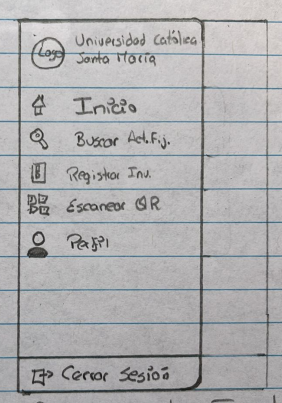 Logo
Universidad Católica
Santa María
Inicio
Buscar Act.Fij.
Registrar Inv.
Escanear QR
Perfil
Cerrar sesión